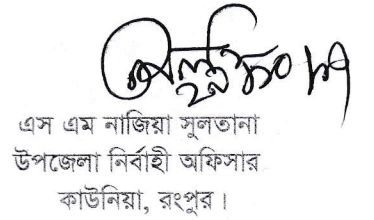 এস এম নাজিয়া সুলতানা
উপজেলা নির্বাহী অফিসার
কাউনিয়া, রংপুর।